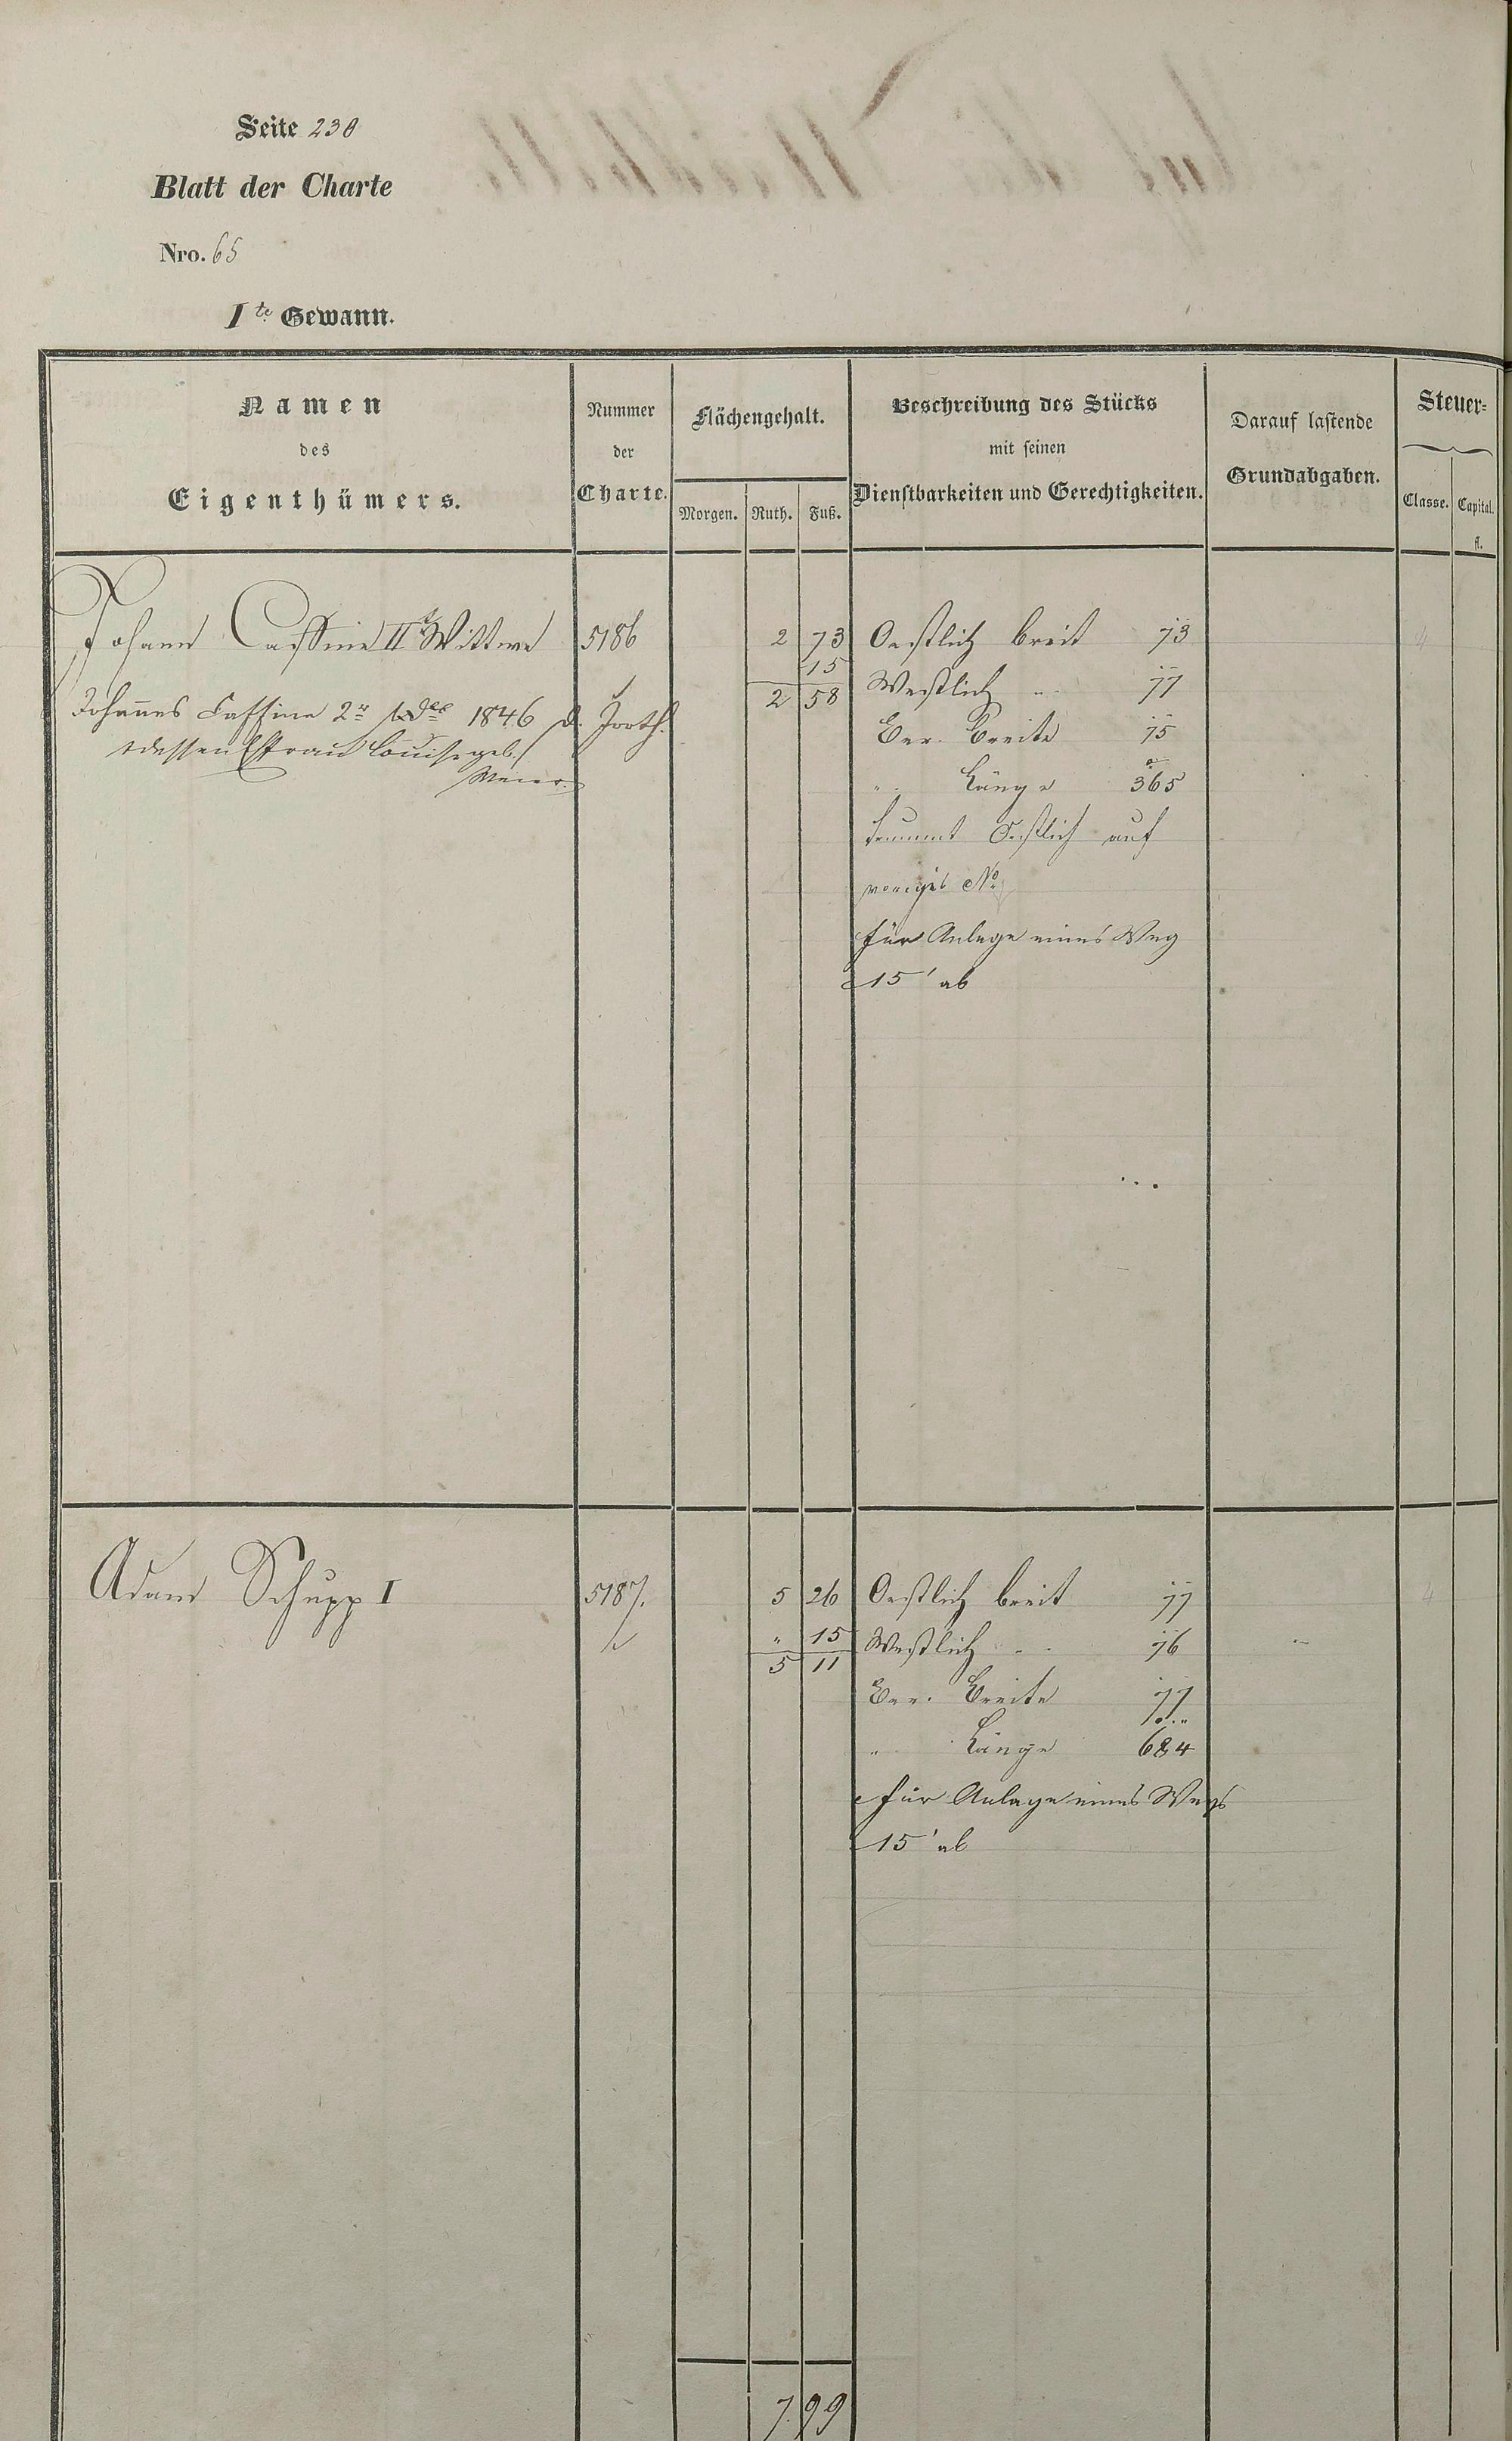 Seite 230
Blatt der Charte
Nro. 65
I te Gewann.
Namen
des
Eigenthümers.
Nummer
der
Charte.
Flächengehalt.
Morgen. Ruth. Fuß.
Beschreibung des Stücks
mit seinen
Dienstbarkeiten und Gerechtigkeiten.
Darauf lastende
Grundabgaben.
Steuer-
Classe. Capital.
fl.
Johann Cassine II Wittwe 5186 2 73 Oestlich breit 73 4
15
2 58 Westlich " 77
Johannes Cassine 2r 1846
Ber. Breite 75
dessen Efrau Louise geb.
" Länge 365
kommt Oestlich auf
voriges No
für Anlage eines Weg
15' ab
Adam Schupp I 5187. 5 26 Oestlich breit 77 4
" 15 Westlich " 76
5 11
Ber. Breite 77
" Länge 684
für Anlage eines Wegs
15' ab
7. 99